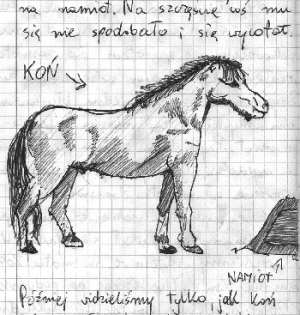 na namiot. Na szczęście coś mu
się nie spodobało i się wycofał.
KOŃ
NAMIOT
Później widzieliśmy tylko jak koń